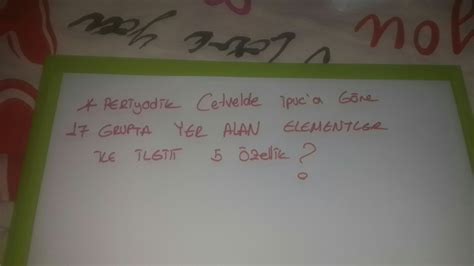 * PERiyodik Cetvelde ipuc'a GÖRE
17 GRUPTA YER ALAN ELEMENTLER
iLE iLGiLi 5 ÖZELLiK ?